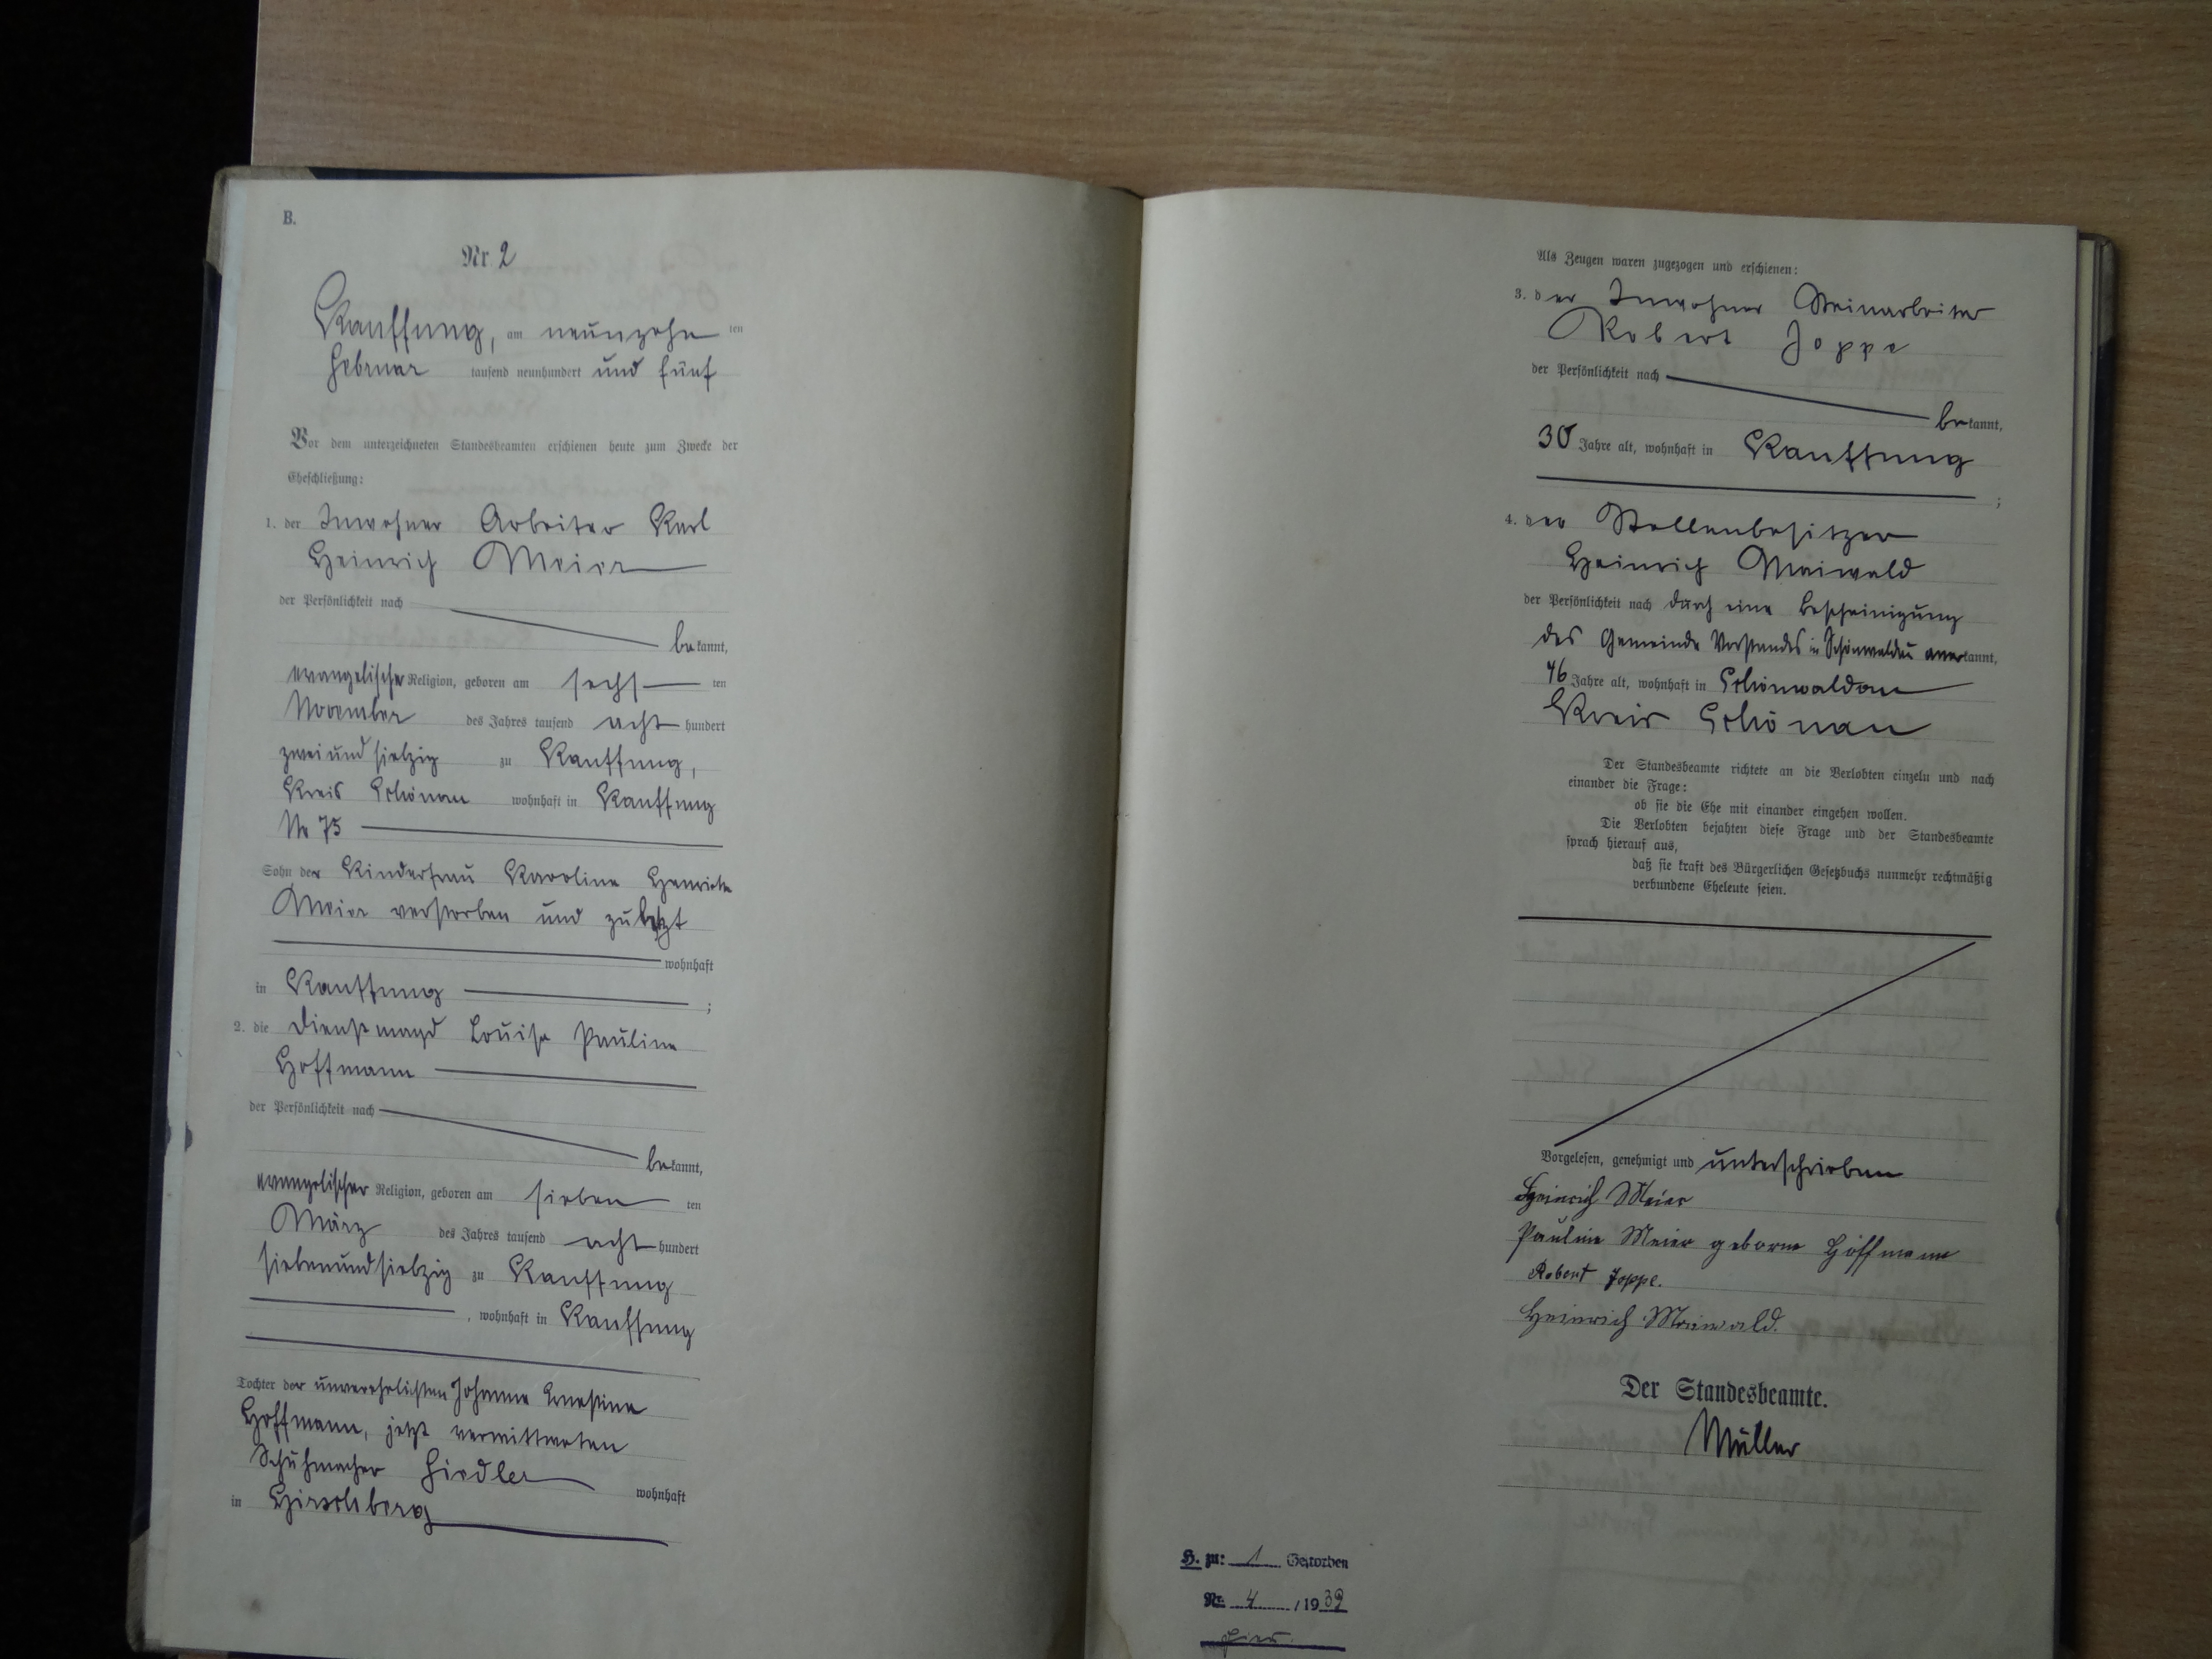 B.
Nr 2
Kauffung, am neunzehn ten
Februar tausend neunhundert und fünf
Vor dem unterzeichneten Standesbeamten erschienen heute zum Zwecke der
Eheschließung:
1. der Inwohner Arbeiter Karl
Heinrich Meier
der Persönlichkeit nach
bekannt,
evangelischer Religion, geboren am sechs ten
November des Jahres tausend acht hundert
zweiundsiebzig zu Kauffung,
Kreis Schönau wohnhaft in Kauffung
No 75
Sohn der Kinderfrau Karoline Henriette
Meier verstorben und zuletzt
wohnhaft
in Kauffung ;
2. die Dienstmagd Louise Pauline
Hoffmann
der Persönlichkeit nach
bekannt,
evangelischer Religion, geboren am sieben ten
März des Jahres tausend acht hundert
siebenundsiebzig zu Kauffung
, wohnhaft in Kauffung
Tochter der unverehelichten Johanne Ernestine
Hoffmann, jetzt verwittweten
Schuhmacher Fiedler wohnhaft
in Hirschberg
Als Zeugen waren zugezogen und erschienen:
3. der Inwohner Steinarbeiter
Robert Joppe
der Persönlichkeit nach
bekannt,
30 Jahre alt, wohnhaft in Kauffung
;
4. der Stellenbesitzer
Heinrich Maiwald
der Persönlichkeit nach durch eine Bescheinigung
des Gemeinde Vorstandes in Schönwaldau anerkannt,
46 Jahre alt, wohnhaft in Schönwaldau
Kreis Schönau
Der Standesbeamte richtete an die Verlobten einzeln und nach
einander die Frage:
ob sie die Ehe mit einander eingehen wollen.
Die Verlobten bejahten diese Frage und der Standesbeamte
sprach hierauf aus,
daß sie kraft des Bürgerlichen Gesetzbuchs nunmehr rechtmäßig
verbundene Eheleute seien.
Vorgelesen, genehmigt und unterschrieben
Heinrich Meier
Pauline Meier geborne Hoffmann
Robert Joppe.
Heinrich Maiwald.
Der Standesbeamte.
Müller
H. zu: 1 Gestorben
Nr. 4 / 1939
hier.